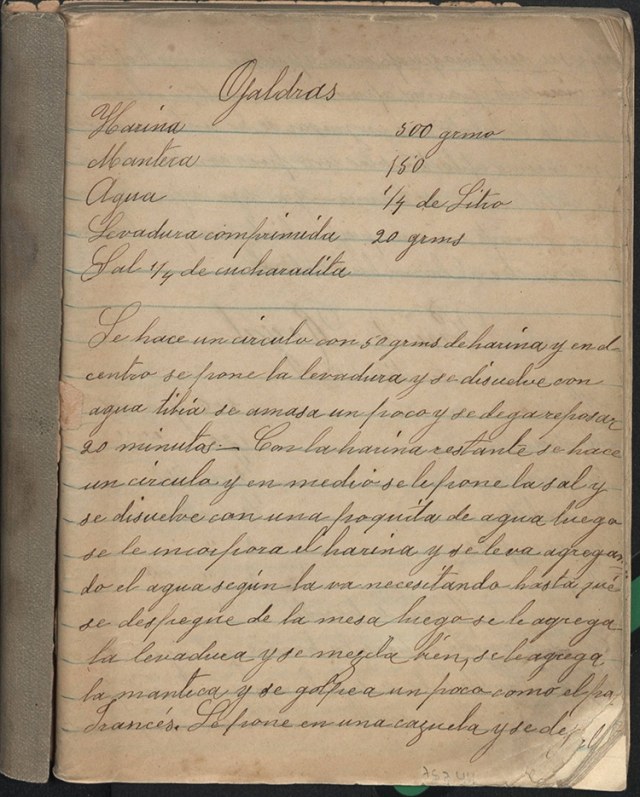 Ojaldras
Harina 500 grmo
Manteca 150
Agua 1/4 de Litro
Levadura comprimida 20 grms
Sal 1/4 de cucharadita
Se hace un circulo con 50 grms de harina y en el
centro se pone la levadura y se disuelve con
agua tibia se amasa un poco y se deja reposar
20 minutos.— Con la harina restante se hace
un circulo y en medio se le pone la sal y
se disuelve con una poquita de agua luego
se le incorpora el harina y se le va agregan-
do el agua según la va necesitando hasta que
se despegue de la mesa luego se le agrega
la levadura y se mezcla bién, se le agrega
la manteca y se golpea un poco como el pa
francés. Se pone en una cazuela y se de